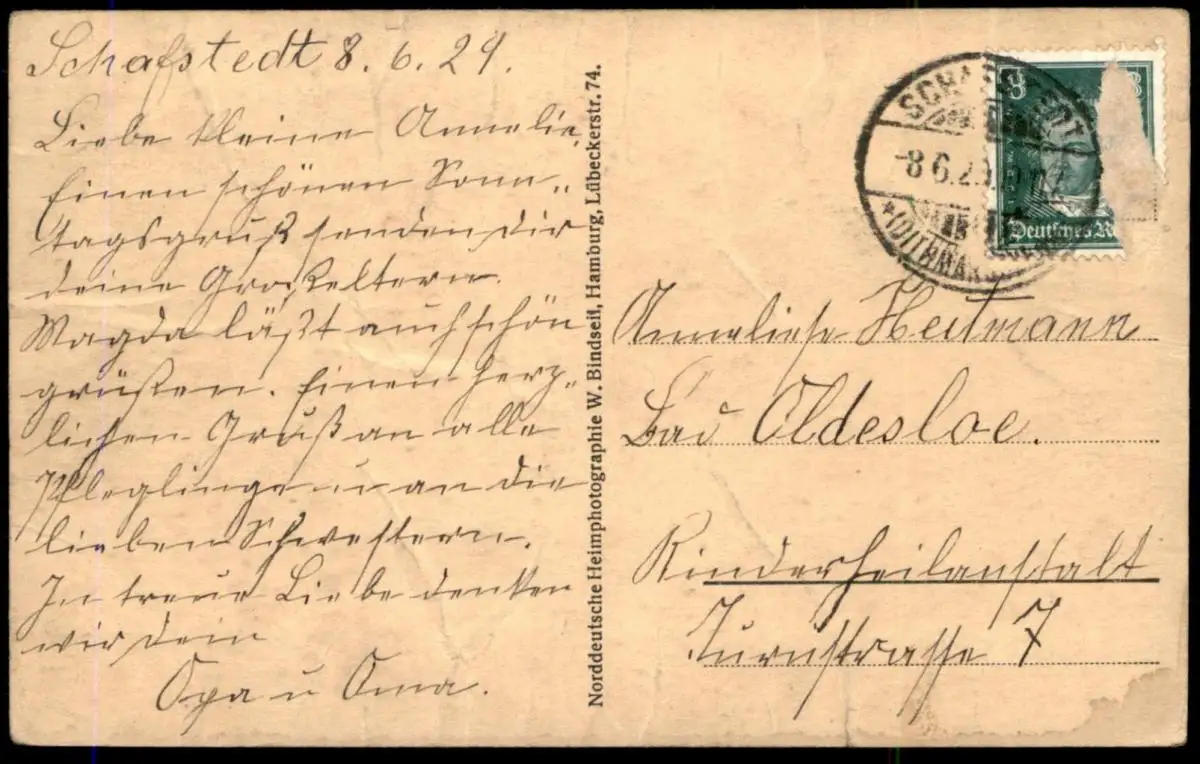 Schafstedt 8. 6. 29.
Liebe kleine Annelie,
Einen schönen Sonn„
tagsgruß senden dir
deine Großeltern.
Magda läßt auch schön
grüßen. Einen herz„
lichen Gruß an alle
Pfleglinge u an die
lieben Schwestern.
In treue Liebe denken
wir dein
Opa u Oma.
Norddeutsche Heimphotographie W. Bindseil, Hamburg, Lübeckerstr. 74.
8 8
Deutsches R
-8 6.29
Anneliese Heitmann
Bad Oldesloe.
Kinderheilanstalt
Turnstrasse 7